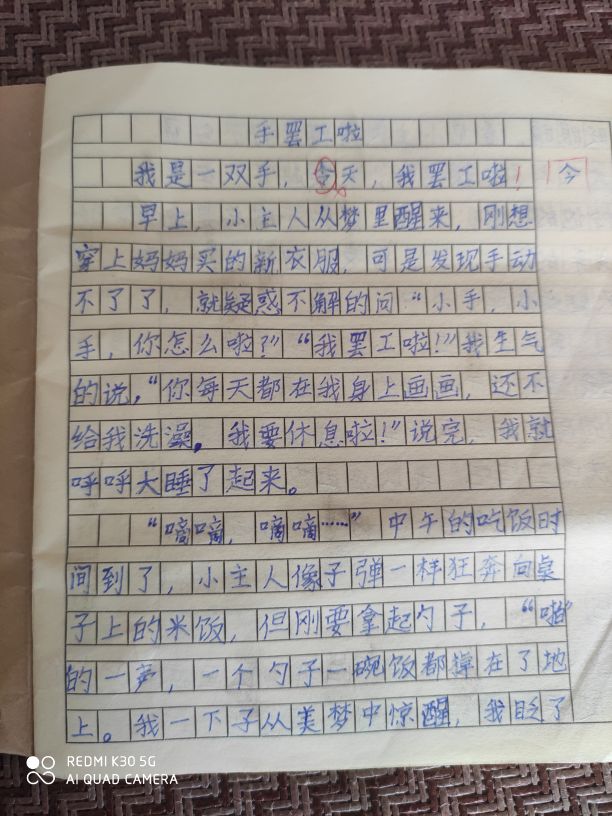 手罢工啦
我是一双手，今天，我罢工啦！ 今
早上，小主人从梦里醒来，刚想
穿上妈妈买的新衣服，可是发现手动
不了了，就疑惑不解的问“小手，小
手，你怎么啦？”“我罢工啦！”我生气
的说，“你每天都在我身上画画，还不
给我洗澡。我要休息啦！”说完，我就
呼呼大睡了起来。
“嘀嘀，嘀嘀……”中午的吃饭时
间到了，小主人像子弹一样狂奔向桌
子上的米饭，但刚要拿起勺子，“啪”
的一声，一个勺子一碗饭都掉在了地
上。我一下子从美梦中惊醒，我眨了
REDMI K30 5G
AI QUAD CAMERA